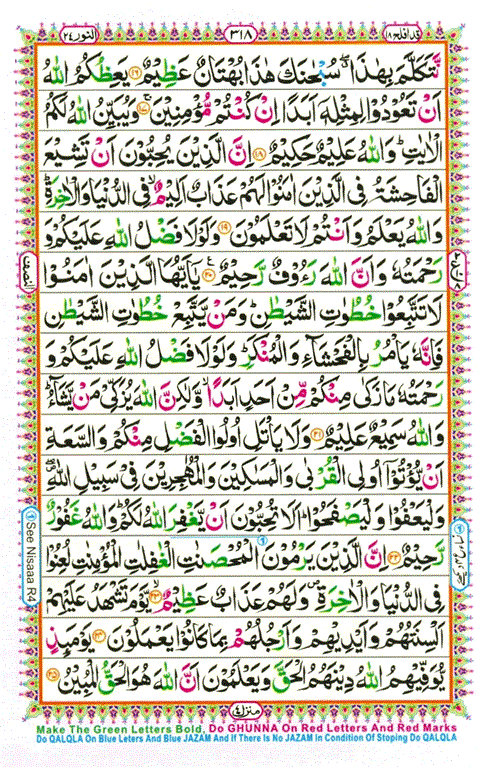 قد افلح ۱۸
۳۱۸
النور ۲۴
نَّتَكَلَّمَ بِهٰذَا ۖ سُبْحٰنَكَ هٰذَا بُهْتَانٌ عَظِيْمٌ ﴿۱۶﴾ يَعِظُكُمُ اللّٰهُ
اَنْ تَعُوْدُوْا لِمِثْلِهٖٓ اَبَدًا اِنْ كُنْتُمْ مُّؤْمِنِيْنَ ﴿۱۷﴾ وَيُبَيِّنُ اللّٰهُ لَكُمُ
الْاٰيٰتِ ؕ وَاللّٰهُ عَلِيْمٌ حَكِيْمٌ ﴿۱۸﴾ اِنَّ الَّذِيْنَ يُحِبُّوْنَ اَنْ تَشِيْعَ
الْفَاحِشَةُ فِى الَّذِيْنَ اٰمَنُوْا لَهُمْ عَذَابٌ اَلِيْمٌ ۙ فِى الدُّنْيَا وَالْاٰخِرَةِ ؕ
وَاللّٰهُ يَعْلَمُ وَاَنْتُمْ لَا تَعْلَمُوْنَ ﴿۱۹﴾ وَلَوْلَا فَضْلُ اللّٰهِ عَلَيْكُمْ وَ
رَحْمَتُهٗ وَاَنَّ اللّٰهَ رَءُوْفٌ رَّحِيْمٌ ﴿۲۰﴾ يٰٓاَيُّهَا الَّذِيْنَ اٰمَنُوْا
لَا تَتَّبِعُوْا خُطُوٰتِ الشَّيْطٰنِ ؕ وَمَنْ يَّتَّبِعْ خُطُوٰتِ الشَّيْطٰنِ
فَاِنَّهٗ يَاْمُرُ بِالْفَحْشَآءِ وَالْمُنْكَرِ ؕ وَلَوْلَا فَضْلُ اللّٰهِ عَلَيْكُمْ وَ
رَحْمَتُهٗ مَا زَكٰى مِنْكُمْ مِّنْ اَحَدٍ اَبَدًا ۙ وَّلٰكِنَّ اللّٰهَ يُزَكِّىْ مَنْ يَّشَآءُ ؕ
وَاللّٰهُ سَمِيْعٌ عَلِيْمٌ ﴿۲۱﴾ وَلَا يَاْتَلِ اُولُوا الْفَضْلِ مِنْكُمْ وَالسَّعَةِ
اَنْ يُّؤْتُوْٓا اُولِى الْقُرْبٰى وَالْمَسٰكِيْنَ وَالْمُهٰجِرِيْنَ فِىْ سَبِيْلِ اللّٰهِ ۖ
وَلْيَعْفُوْا وَلْيَصْفَحُوْا ؕ اَلَا تُحِبُّوْنَ اَنْ يَّغْفِرَ اللّٰهُ لَكُمْ ؕ وَاللّٰهُ غَفُوْرٌ
رَّحِيْمٌ ﴿۲۲﴾ اِنَّ الَّذِيْنَ يَرْمُوْنَ الْمُحْصَنٰتِ الْغٰفِلٰتِ الْمُؤْمِنٰتِ لُعِنُوْا
فِى الدُّنْيَا وَالْاٰخِرَةِ ۪ وَلَهُمْ عَذَابٌ عَظِيْمٌ ﴿۲۳﴾ يَّوْمَ تَشْهَدُ عَلَيْهِمْ
اَلْسِنَتُهُمْ وَاَيْدِيْهِمْ وَاَرْجُلُهُمْ بِمَا كَانُوْا يَعْمَلُوْنَ ﴿۲۴﴾ يَوْمَئِذٍ
يُّوَفِّيْهِمُ اللّٰهُ دِيْنَهُمُ الْحَقَّ وَيَعْلَمُوْنَ اَنَّ اللّٰهَ هُوَ الْحَقُّ الْمُبِيْنُ ﴿۲۵﴾
النصف
See Nisaaa R4
منزل ۴
Make The Green Letters Bold, Do GHUNNA On Red Letters And Red Marks
Do QALQLA On Blue Leters And Blue JAZAM And If There Is No JAZAM In Condition Of Stoping Do QALQLA